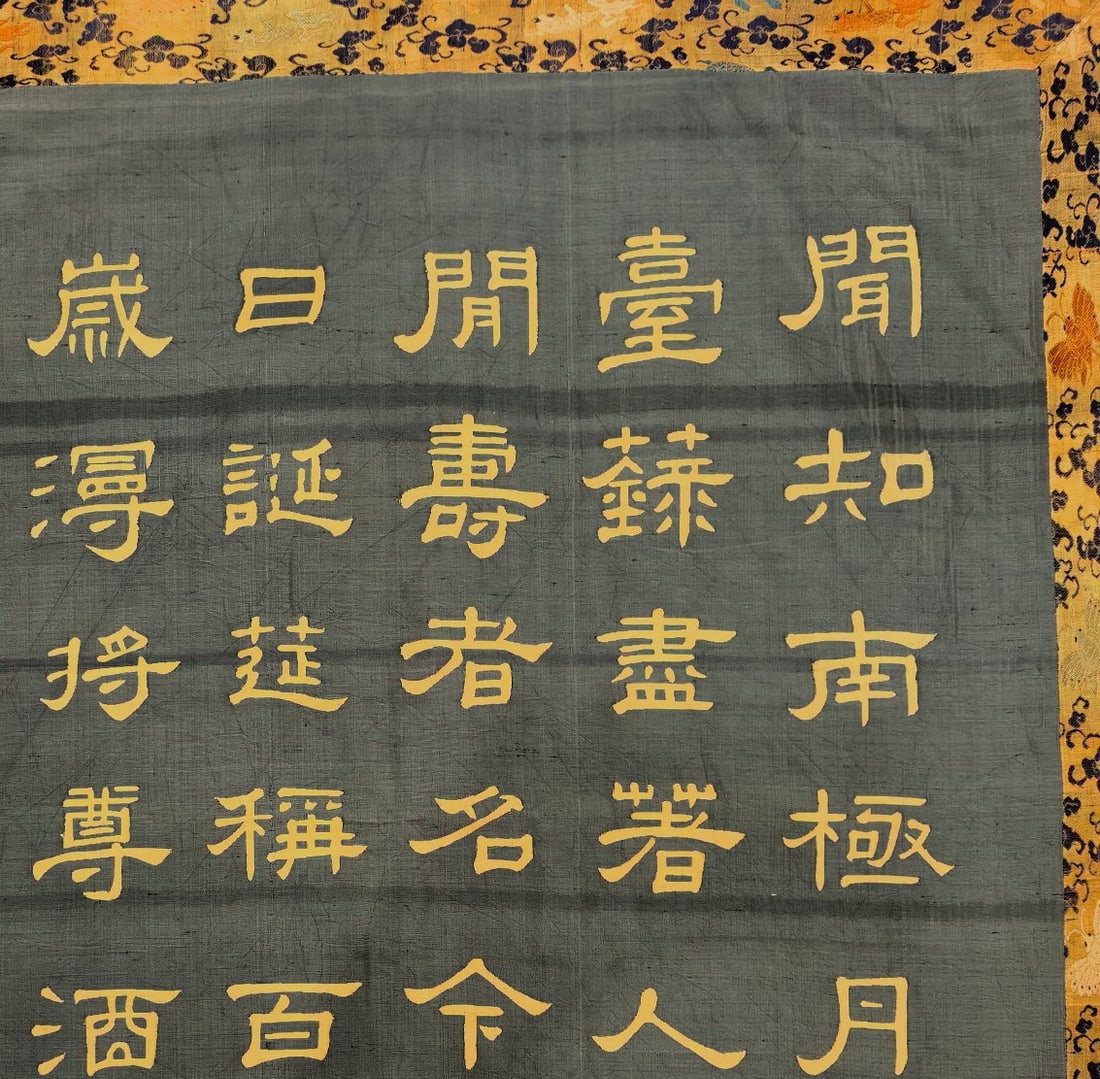 聞知南極月
臺籙盡著人
閒壽者名今
日誕筵稱百
歲漫将尊酒